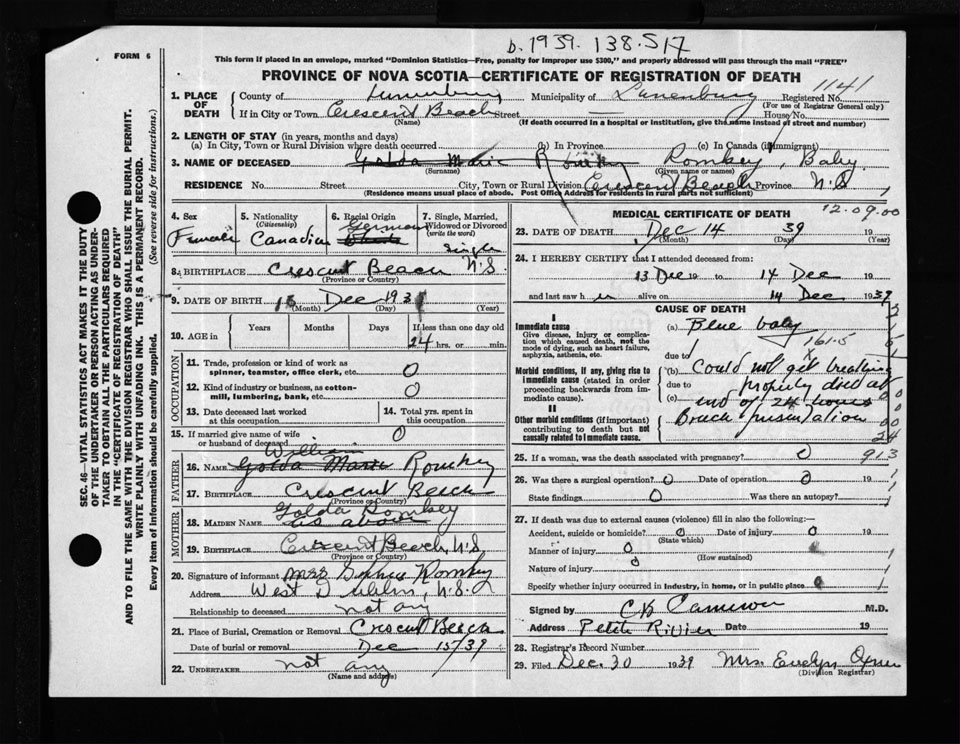 b. 1939. 138.517
FORM 6
This form if placed in an envelope, marked "Dominion Statistics—Free, penalty for improper use $300," and properly addressed will pass through the mail "FREE"
PROVINCE OF NOVA SCOTIA—CERTIFICATE OF REGISTRATION OF DEATH
1141
1. PLACE OF DEATH
County of Lunenburg Municipality of Lunenburg Registered No.
(For use of Registrar General only)
If in City or Town Crescent Beach Street House No.
(Name) (If death occurred in a hospital or institution, give the name instead of street and number)
2. LENGTH OF STAY (in years, months and days)
(a) In City, Town or Rural Division where death occurred (b) In Province (c) In Canada (if immigrant)
3. NAME OF DECEASED Golda Marie Romkey Romkey, Baby
(Surname) (Given name or names)
RESIDENCE No. Street City, Town or Rural Division Crescent Beach Province N.S
(Residence means usual place of abode. Post Office Address for residents in rural parts not sufficient)
4. Sex
Female
5. Nationality
(Citizenship)
Canadian
6. Racial Origin
German
7. Single, Married, Widowed or Divorced
(write the word)
Single
8. BIRTHPLACE Crescent Beach N.S.
(Province or Country)
9. DATE OF BIRTH Dec 193
(Month) (Day) (Year)
10. AGE in
Years Months Days If less than one day old
24 hrs. or min.
OCCUPATION
11. Trade, profession or kind of work as spinner, teamster, office clerk, etc. 0
12. Kind of industry or business, as cotton-mill, lumbering, bank, etc. 0
13. Date deceased last worked at this occupation
14. Total yrs. spent in this occupation
15. If married give name of wife or husband of deceased 0
FATHER
William
16. NAME Golda Marie Romkey
17. BIRTHPLACE Crescent Beach
(Province or Country)
MOTHER
Golda Romkey
18. MAIDEN NAME as above
19. BIRTHPLACE Crescent Beach, N.S.
(Province or Country)
20. Signature of informant Mrs Romkey
Address West Dublin, N.S.
Relationship to deceased not any
21. Place of Burial, Cremation or Removal Crescent Beach
Date of burial or removal Dec 15/39
22. UNDERTAKER not any
(Name and address)
MEDICAL CERTIFICATE OF DEATH
12.09.00
23. DATE OF DEATH Dec 14 39 19
(Month) (Day) (Year)
24. I HEREBY CERTIFY that I attended deceased from:
13 Dec 19 to 14 Dec 19
and last saw h er alive on 14 Dec 1939
CAUSE OF DEATH
I
Immediate cause
Give disease, injury or complication which caused death, not the mode of dying, such as heart failure, asphyxia, asthenia, etc.
(a) Blue baby
161.5
due to
Morbid conditions, if any, giving rise to immediate cause (stated in order proceeding backwards from immediate cause).
(b) Could not get breathing
due to properly died at
(c) end of 24 hours
II
Other morbid conditions (if important) contributing to death but not causally related to immediate cause.
Breech presentation
25. If a woman, was the death associated with pregnancy? 0
913
26. Was there a surgical operation? 0 Date of operation 0 19
State findings 0 Was there an autopsy?
27. If death was due to external causes (violence) fill in also the following:—
Accident, suicide or homicide? 0 Date of injury 0 19
(State which)
Manner of injury 0
(How sustained)
Nature of injury
Specify whether injury occurred in industry, in home, or in public place
Signed by C B Cameron M.D.
Address Petite Riviere Date 19
28. Registrar's Record Number
29. Filed Dec. 30 1939 Mrs. Evelyn Oxner
(Division Registrar)
SEC. 46—VITAL STATISTICS ACT MAKES IT THE DUTY OF THE UNDERTAKER OR PERSON ACTING AS UNDERTAKER TO OBTAIN ALL THE PARTICULARS REQUIRED IN THE "CERTIFICATE OF REGISTRATION OF DEATH"
AND TO FILE THE SAME WITH THE DIVISION REGISTRAR WHO SHALL ISSUE THE BURIAL PERMIT.
WRITE PLAINLY WITH UNFADING INK. THIS IS A PERMANENT RECORD.
Every item of information should be carefully supplied. (See reverse side for instructions.)